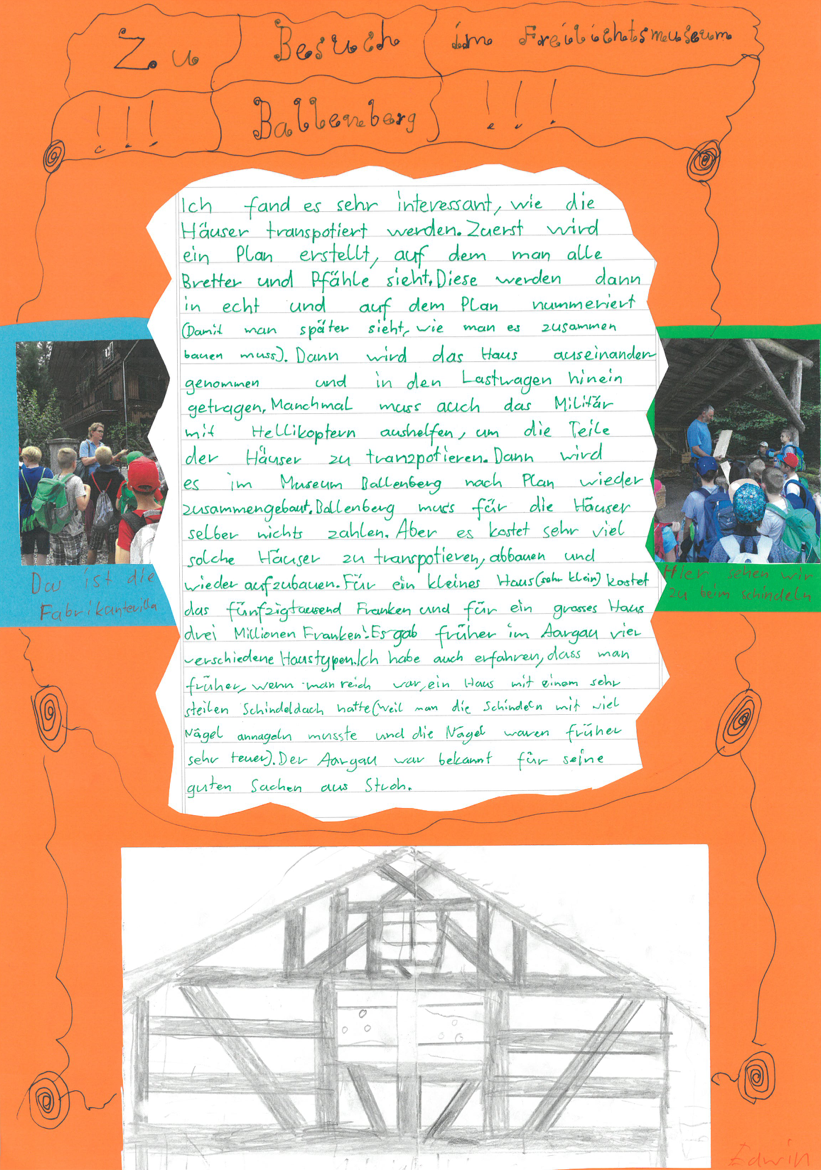 Zu Besuch im Freilichtsmuseum
!!! Ballenberg !!!
Ich fand es sehr interessant, wie die
Häuser transpotiert werden. Zuerst wird
ein Plan erstellt, auf dem man alle
Bretter und Pfähle sieht. Diese werden dann
in echt und auf dem Plan nummeriert
(Damit man später sieht, wie man es zusammen
bauen muss). Dann wird das Haus auseinander
genommen und in den Lastwagen hinein
getragen. Manchmal muss auch das Militär
mit Hellikoptern aushelfen, um die Teile
der Häuser zu tranzpotieren. Dann wird
es im Museum Ballenberg nach Plan wieder
zusammengebaut. Ballenberg muss für die Häuser
selber nichts zahlen. Aber es kostet sehr viel
solche Häuser zu transpotieren, abbauen und
wieder aufzubauen. Für ein kleines Haus (sehr klein) kostet
das fünfzigtausend Franken und für ein grosses Haus
drei Millionen Franken! Es gab früher im Aargau vier
verschiedene Haustypen. Ich habe auch erfahren, dass man
früher, wenn man reich war, ein Haus mit einem sehr
steilen Schindeldach hatte (weil man die Schindeln mit viel
Nägel annageln musste und die Nägel waren früher
sehr teuer). Der Aargau war bekannt für seine
guten Sachen aus Stroh.
Das ist die
Fabrikantenvilla
Hier sehen wir
zu beim schindeln
Edwin